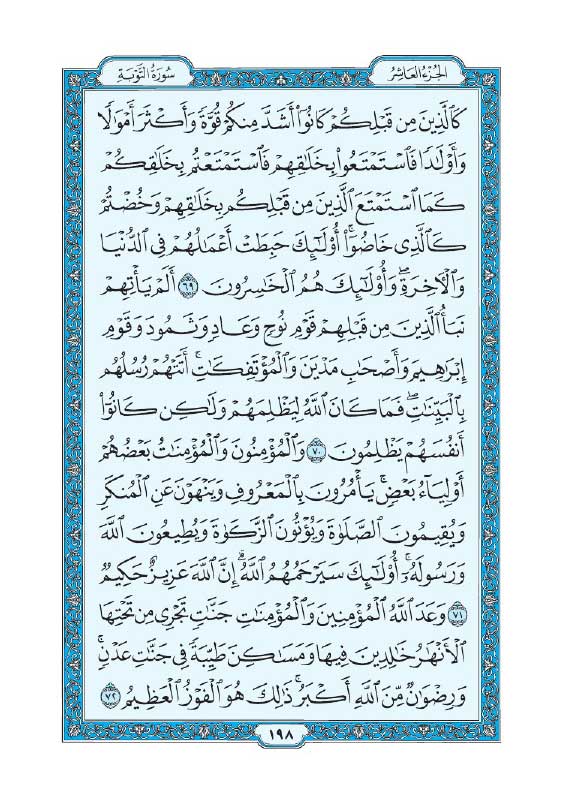 الجزء العاشر
سورة التوبة
كَالَّذِينَ مِن قَبْلِكُمْ كَانُوٓا۟ أَشَدَّ مِنكُمْ قُوَّةً وَأَكْثَرَ أَمْوَٰلًا
وَأَوْلَٰدًا فَٱسْتَمْتَعُوا۟ بِخَلَٰقِهِمْ فَٱسْتَمْتَعْتُم بِخَلَٰقِكُمْ
كَمَا ٱسْتَمْتَعَ ٱلَّذِينَ مِن قَبْلِكُم بِخَلَٰقِهِمْ وَخُضْتُمْ
كَٱلَّذِى خَاضُوٓا۟ ۚ أُو۟لَٰٓئِكَ حَبِطَتْ أَعْمَٰلُهُمْ فِى ٱلدُّنْيَا
وَٱلْءَاخِرَةِ ۖ وَأُو۟لَٰٓئِكَ هُمُ ٱلْخَٰسِرُونَ ٦٩ أَلَمْ يَأْتِهِمْ
نَبَأُ ٱلَّذِينَ مِن قَبْلِهِمْ قَوْمِ نُوحٍ وَعَادٍ وَثَمُودَ وَقَوْمِ
إِبْرَٰهِيمَ وَأَصْحَٰبِ مَدْيَنَ وَٱلْمُؤْتَفِكَٰتِ ۚ أَتَتْهُمْ رُسُلُهُم
بِٱلْبَيِّنَٰتِ ۖ فَمَا كَانَ ٱللَّهُ لِيَظْلِمَهُمْ وَلَٰكِن كَانُوٓا۟
أَنفُسَهُمْ يَظْلِمُونَ ٧٠ وَٱلْمُؤْمِنُونَ وَٱلْمُؤْمِنَٰتُ بَعْضُهُمْ
أَوْلِيَآءُ بَعْضٍ ۚ يَأْمُرُونَ بِٱلْمَعْرُوفِ وَيَنْهَوْنَ عَنِ ٱلْمُنكَرِ
وَيُقِيمُونَ ٱلصَّلَوٰةَ وَيُؤْتُونَ ٱلزَّكَوٰةَ وَيُطِيعُونَ ٱللَّهَ
وَرَسُولَهُۥٓ ۚ أُو۟لَٰٓئِكَ سَيَرْحَمُهُمُ ٱللَّهُ ۗ إِنَّ ٱللَّهَ عَزِيزٌ حَكِيمٌ
٧١ وَعَدَ ٱللَّهُ ٱلْمُؤْمِنِينَ وَٱلْمُؤْمِنَٰتِ جَنَّٰتٍ تَجْرِى مِن تَحْتِهَا
ٱلْأَنْهَٰرُ خَٰلِدِينَ فِيهَا وَمَسَٰكِنَ طَيِّبَةً فِى جَنَّٰتِ عَدْنٍ ۚ
وَرِضْوَٰنٌ مِّنَ ٱللَّهِ أَكْبَرُ ۚ ذَٰلِكَ هُوَ ٱلْفَوْزُ ٱلْعَظِيمُ ٧٢
١٩٨